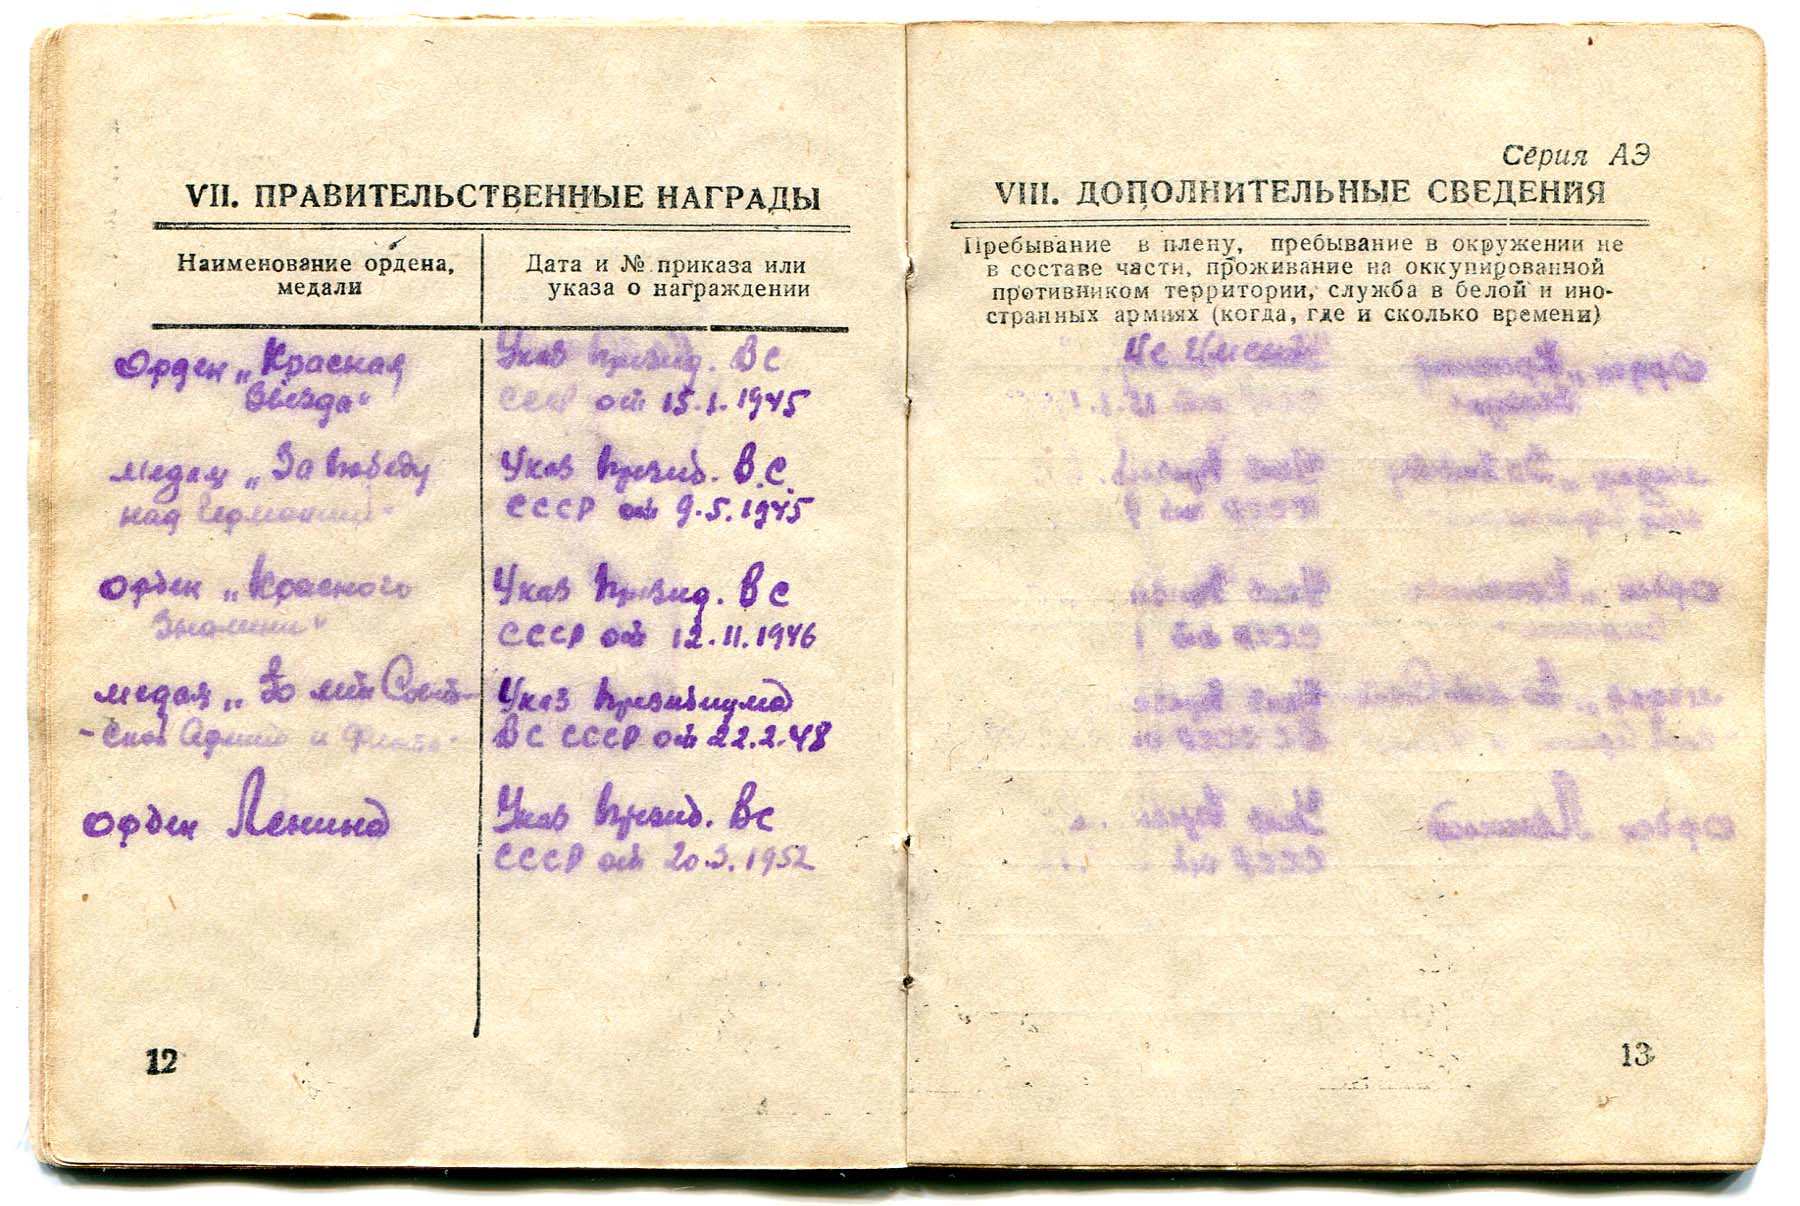 VII. ПРАВИТЕЛЬСТВЕННЫЕ НАГРАДЫ
Наименование ордена,
медали
Дата и № приказа или
указа о награждении
Орден „Красная
Звезда"
Указ Презид. ВС
СССР от 15.1.1945
медаль „За победу
над Германией"
Указ Презид. В.С.
СССР от 9.5.1945
орден „Красного
Знамени"
Указ Презид. ВС
СССР от 12.11.1946
медаль „30 лет Совет-
-ской Армии и Флота"
Указ Президиума
ВС СССР от 22.2.48
орден Ленина
Указ Презид. ВС
СССР от 20.3.1952
12
Серия АЭ
VIII. ДОПОЛНИТЕЛЬНЫЕ СВЕДЕНИЯ
Пребывание в плену, пребывание в окружении не
в составе части, проживание на оккупированной
противником территории, служба в белой и ино-
странных армиях (когда, где и сколько времени)
13